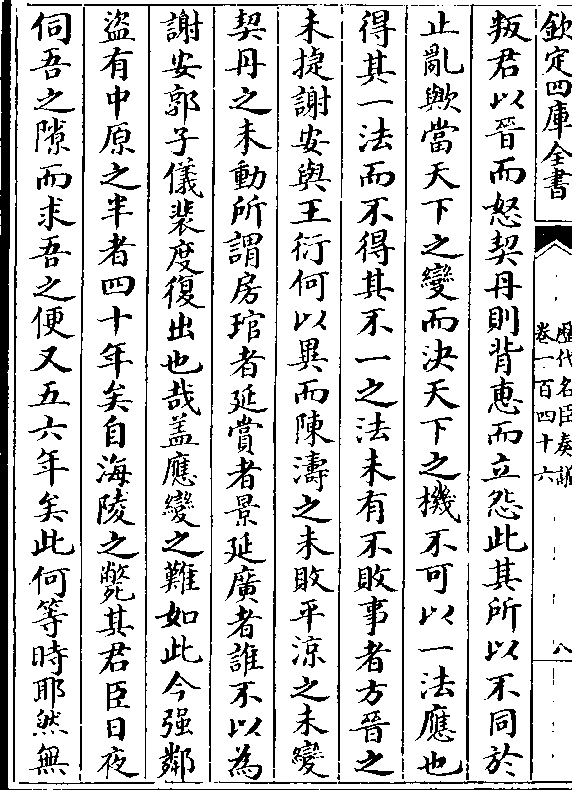 欽定四庫全書
歷代名臣奏議
卷一百四十六
八
叛君以晉而怒契丹則背惠而立怨此其所以不同於
止亂歟當天下之變而決天下之機不可以一法應也
得其一法而不得其不一之法未有不敗事者方晉之
未捷謝安與王衍何以異而陳濤之未敗平涼之未變
契丹之未動所謂房琯者延賞者景延廣者誰不以為
謝安郭子儀裴度復出也哉盖應變之難如此今强鄰
盜有中原之半者四十年矣自海陵之斃其君臣日夜
伺吾之隙而求吾之便又五六年矣此何等時耶然無